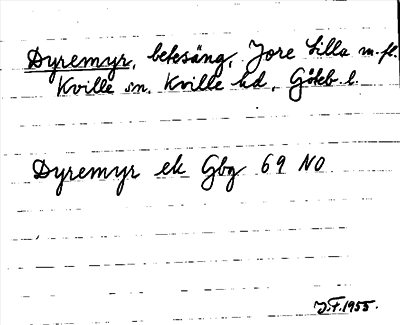 Dyremyr, betesäng, Jore Lilla m.fl.
Kville sn. Kville hd, Göteb. l.
Dyremyr ek Gbg 69 NO
J.F. 1955.